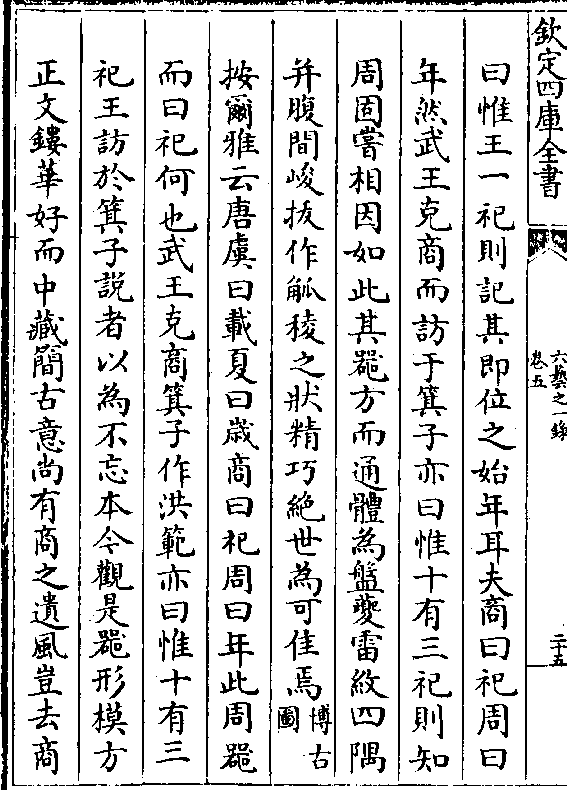 欽定四庫全書
六藝之一錄
卷五
二十五
曰惟王一祀則記其即位之始年耳夫商曰祀周曰
年然武王克商而訪于箕子亦曰惟十有三祀則知
周固嘗相因如此其器方而通體為盤夔雷紋四隅
并腹間峻拔作觚稜之狀精巧絕世為可佳焉博古圖
按爾雅云唐虞曰載夏曰歲商曰祀周曰年此周器
而曰祀何也武王克商箕子作洪範亦曰惟十有三
祀王訪於箕子説者以為不忘本今觀是器形模方
正文鏤華好而中藏簡古意尚有商之遺風豈去商